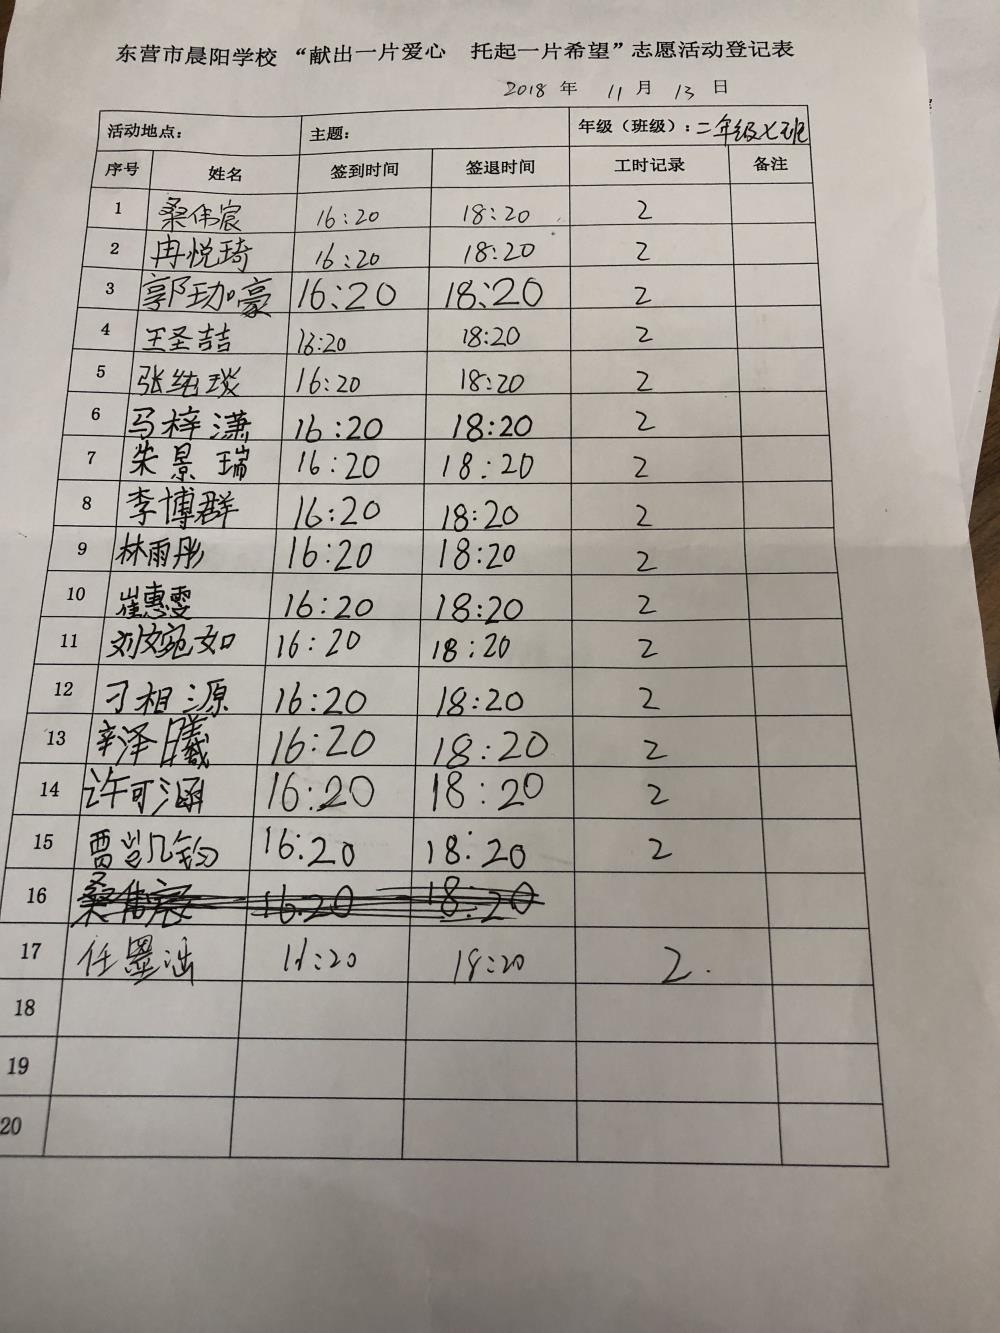 东营市晨阳学校 “献出一片爱心 托起一片希望”志愿活动登记表
2018 年 11 月 13 日
活动地点: 主题: 年级（班级）: 二年级七班
序号 姓名 签到时间 签退时间 工时记录 备注
1 桑伟宸 16:20 18:20 2
2 冉悦琦 16:20 18:20 2
3 郭珈豪 16:20 18:20 2
4 王圣喆 16:20 18:20 2
5 张纯琰 16:20 18:20 2
6 马梓潇 16:20 18:20 2
7 朱景瑞 16:20 18:20 2
8 李博群 16:20 18:20 2
9 林雨彤 16:20 18:20 2
10 崔惠雯 16:20 18:20 2
11 刘文宛如 16:20 18:20 2
12 刁相源 16:20 18:20 2
13 辛泽曦 16:20 18:20 2
14 许可涵 16:20 18:20 2
15 贾凯钧 16:20 18:20 2
16 桑伟宸 16:20 18:20
17 任墨 16:20 18:20 2.
18
19
20